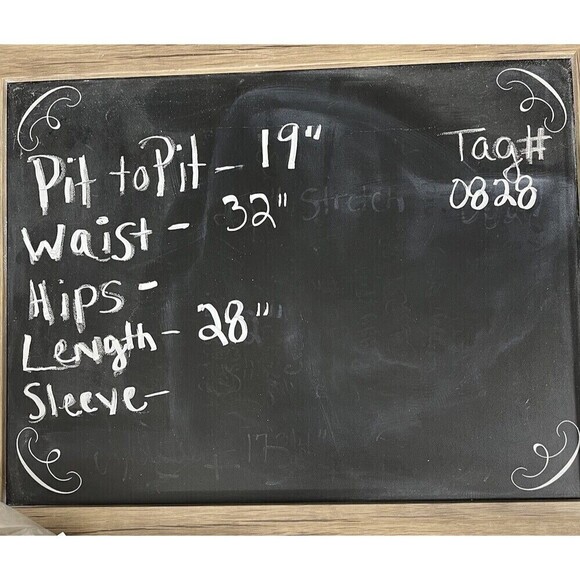 Pit to Pit - 19"
Tag#
0828
Waist - 32"
Stretch
Hips -
Length - 28"
Sleeve -